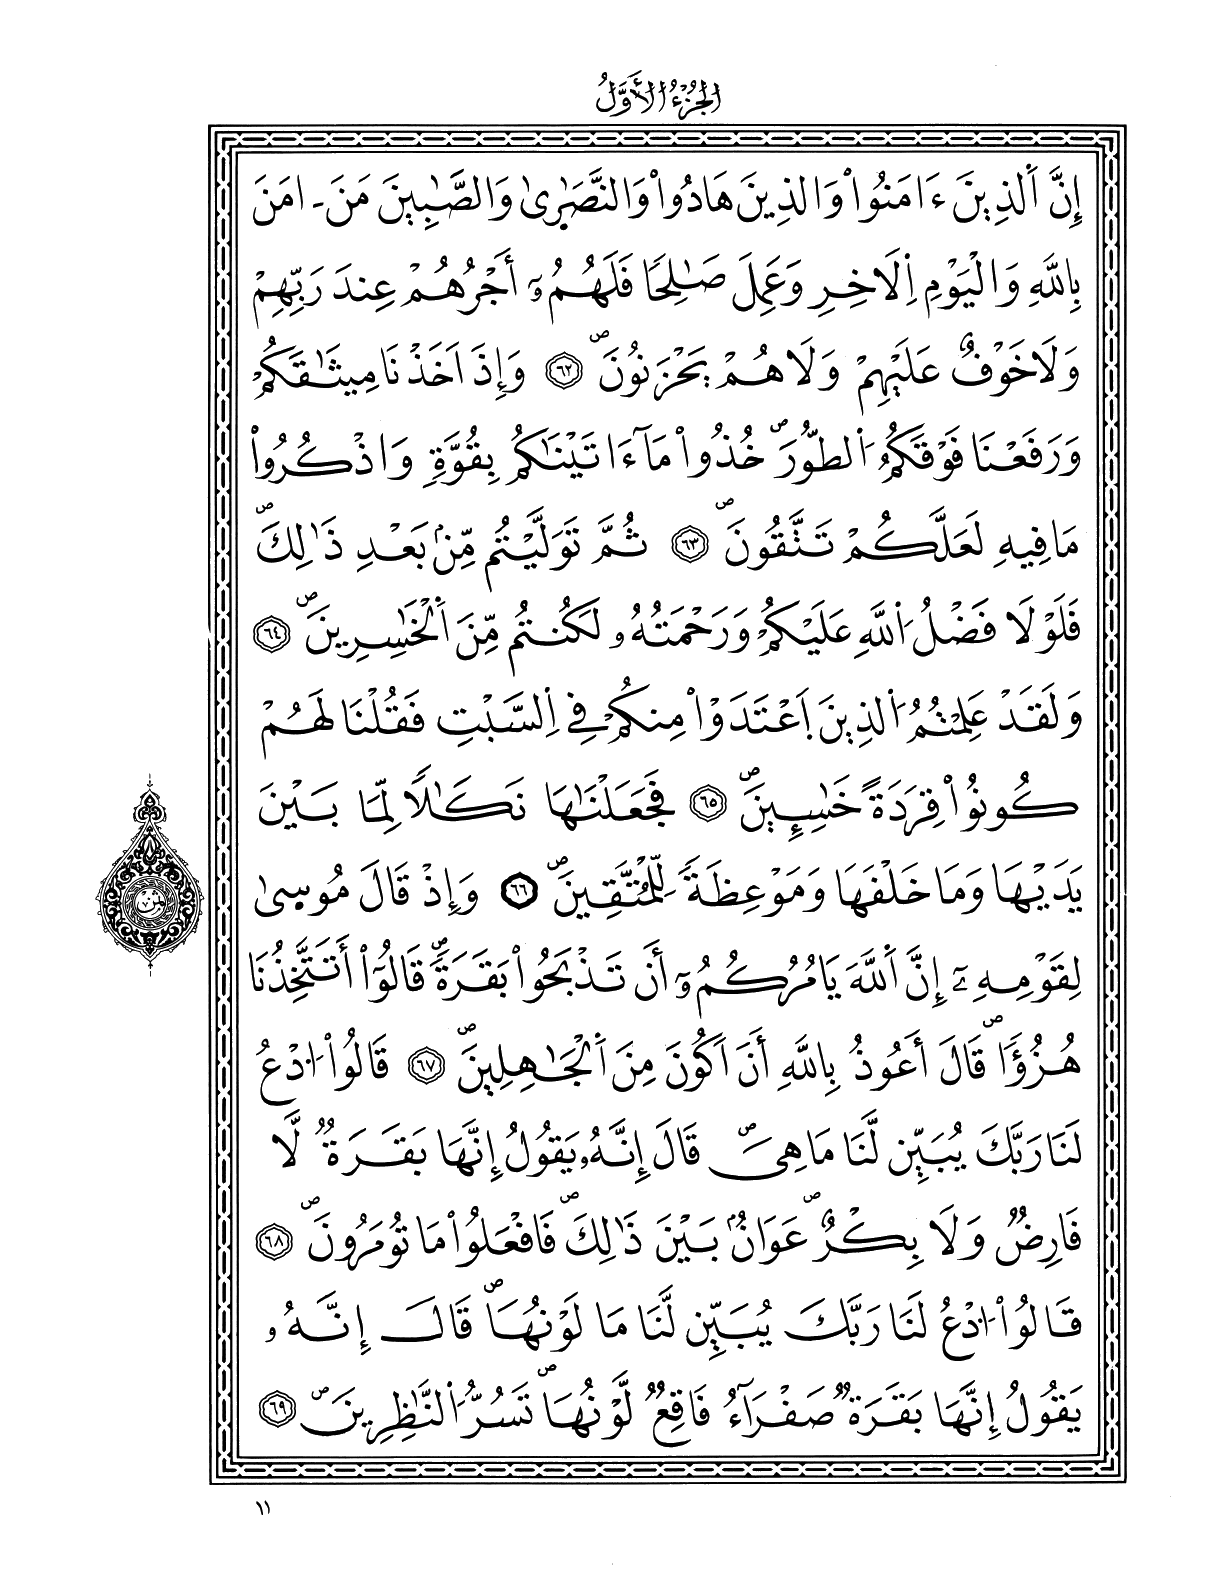 الجُزْءُ الأَوَّلُ
إِنَّ اَ۬لذِينَ ءَامَنُواْ وَالذِينَ هَادُواْ وَالنَّصَٰر۪ىٰ وَالصَّٰبِينَ مَنَ ـ امَنَ
بِاللَّهِ وَالْيَوْمِ اِ۬لَاخِرِ وَعَمِلَ صَٰلِحًا فَلَهُمُۥٓ أَجْرُهُمْ عِندَ رَبِّهِمْ
وَلَا خَوْفٌ عَلَيْهِمْ وَلَا هُمْ يَحْزَنُونَۖ ٦٢ وَإِذَ اَخَذْنَا مِيثَٰقَكُمْ
وَرَفَعْنَا فَوْقَكُمُ اُ۬لطُّورَۖ خُذُواْ مَآ ءَاتَيْنَٰكُم بِقُوَّةٍ وَاذْكُرُواْ
مَا فِيهِ لَعَلَّكُمْ تَتَّقُونَۖ ٦٣ ثُمَّ تَوَلَّيْتُم مِّنۢ بَعْدِ ذَٰلِكَۖ
فَلَوْلَا فَضْلُ اُ۬للَّهِ عَلَيْكُمْ وَرَحْمَتُهُۥ لَكُنتُم مِّنَ اَ۬لْخَٰسِرِينَۖ ٦٤
وَلَقَدْ عَلِمْتُمُ اُ۬لذِينَ اَ۪عْتَدَوْاْ مِنكُمْ فِي اِ۬لسَّبْتِ فَقُلْنَا لَهُمْ
كُونُواْ قِرَدَةً خَٰسِـِٕينَۖ ٦٥ فَجَعَلْنَٰهَا نَكَٰلًا لِّمَا بَيْنَ
يَدَيْهَا وَمَا خَلْفَهَا وَمَوْعِظَةً لِّلْمُتَّقِينَۖ ٦٦ وَإِذْ قَالَ مُوس۪ىٰ
لِقَوْمِهِۦٓ إِنَّ اَ۬للَّهَ يَامُرُكُمُۥٓ أَن تَذْبَحُواْ بَقَرَةًۖ قَالُوٓاْ أَتَتَّخِذُنَا
هُزُؤًاۖ قَالَ أَعُوذُ بِاللَّهِ أَنَ اَكُونَ مِنَ اَ۬لْجَٰهِلِينَۖ ٦٧ قَالُواْ اُ۟دْعُ
لَنَا رَبَّكَ يُبَيِّن لَّنَا مَا هِيَۖ قَالَ إِنَّهُۥ يَقُولُ إِنَّهَا بَقَرَةٞ لَّا
فَارِضٞ وَلَا بِكْرٌۖ عَوَانُۢ بَيْنَ ذَٰلِكَۖ فَافْعَلُواْ مَا تُومَرُونَۖ ٦٨
قَالُواْ اُ۟دْعُ لَنَا رَبَّكَ يُبَيِّن لَّنَا مَا لَوْنُهَاۖ قَالَ إِنَّهُۥ
يَقُولُ إِنَّهَا بَقَرَةٞ صَفْرَآءُ فَاقِعٞ لَّوْنُهَاۖ تَسُرُّ اُ۬لنَّٰظِرِينَۖ ٦٩
١١